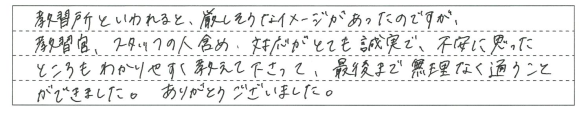 教習所といわれると、厳しそうなイメージがあったのですが、
教習官、スタッフの人含め、対応がとても誠実で、不安に思った
ところもわかりやすく教えて下さって、最後まで無理なく通うこと
ができました。ありがとうございました。